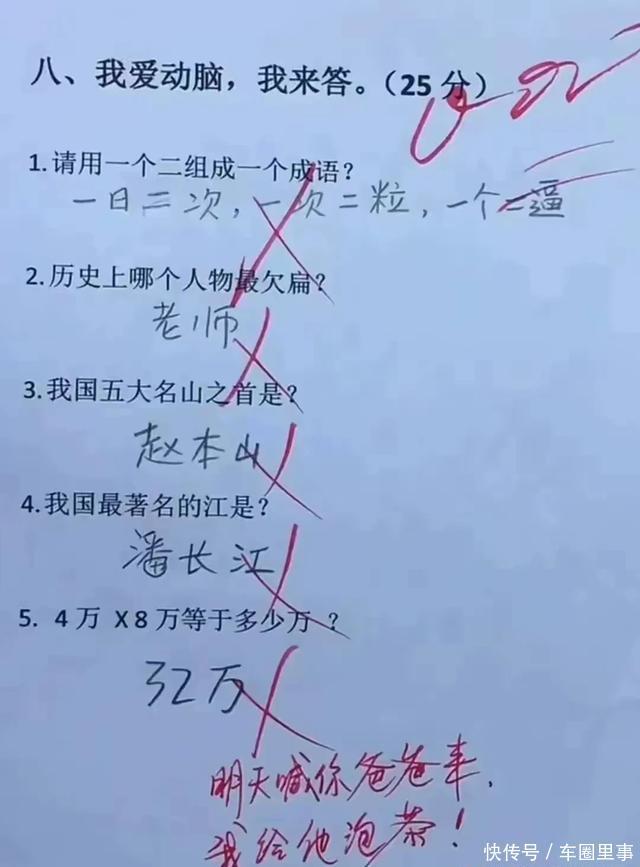 八、我爱动脑，我来答。（25分）
1.请用一个二组成一个成语？
一日三次，一次二粒，一个二逼
2.历史上哪个人物最欠扁？
老师
3.我国五大名山之首是？
赵本山
4.我国最著名的江是？
潘长江
5. 4万 X8万等于多少万 ？
32万
明天喊你爸爸来，
我给他泡茶！
快传号／车圈里事